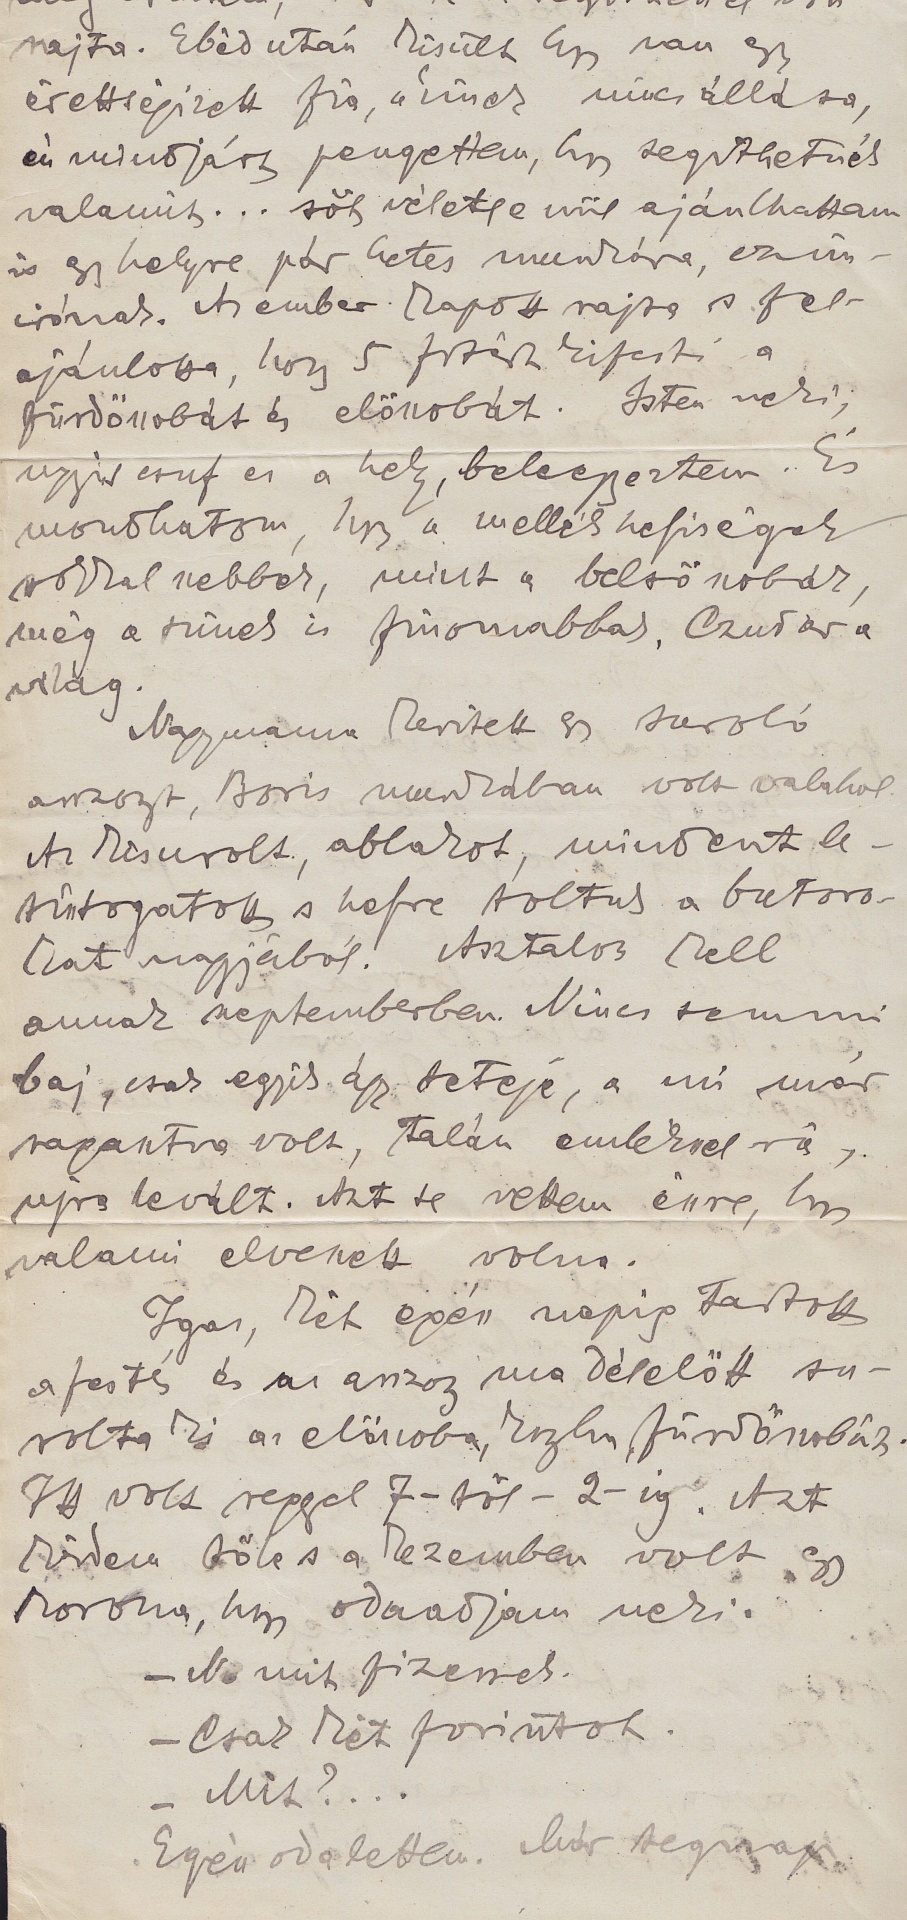 rajta. Ebéd után kisült hgy van egy
érettségizett fia, a kinek nincs állása,
én mindjárt pengettem, hgy segithetnék
valamit... sőt véletlenül ajánlhattam
is egy helyre pár hetes munkára,
irónak. Az ember kapott rajta s fel-
ajánlotta, hogy 5 frtért kifesti a
fürdőszobát és előszobát. Isten neki,
ugyis csuf ez a hely, beleegyeztem. És
mondhatom, hgy a mellékhelyiségek
sokkal szebbek, mint a belső szobák,
még a szinek is finomabbak. Czudar a
világ.
Nagymama keritett egy suroló
asszonyt, Boris munkában volt valahol.
Az kisurolt, ablakot, mindent le-
tisztogatott s helyre toltuk a butoro-
kat nagyjából. Asztalos kell
annak szeptemberben. Nincs semmi
baj, csak egyik ágy teteje, a mi már
ragasztva volt, talán emlékszel rá,
ujra levált. Azt se vettem észre, hgy
valami elveszett volna.
Igaz, két egész napig tartott
a festés és az asszony ma délelőtt su-
rolta ki az előszoba, konyha, fürdőszobát.
Itt volt reggel 7-től - 2-ig. Azt
kérdem tőle s a kezemben volt egy
korona, hgy odaadjam neki.
- No mit fizessek.
- Csak két forintot.
- Mit?....
Egész oda lettem. Már tegnap